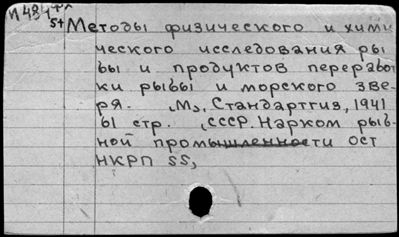 И484
54 Методы физического и хими
ческого исследования ры
бы и продуктов переработ
ки рыбы и морского зве-
ря. М., Стандартгиз, 1941
61 стр. (СССР. Нарком рыб-
ной промышленности ОСТ
НКРП 55,